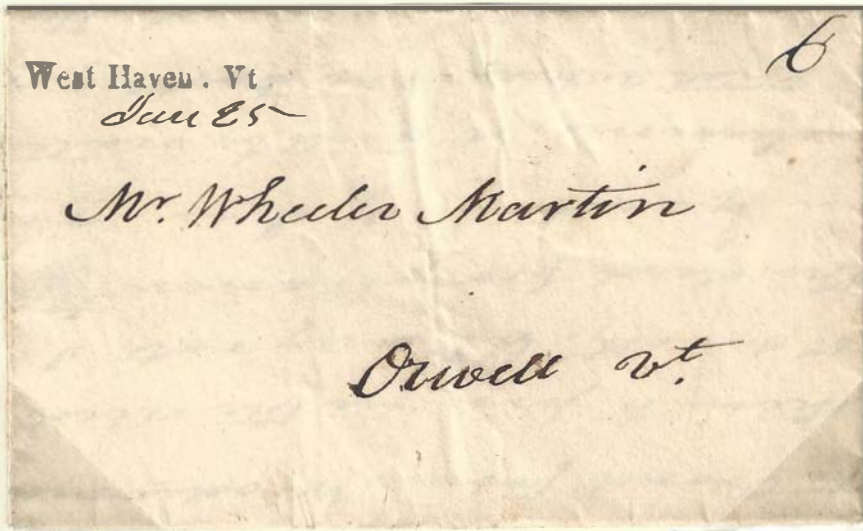 West Haven . Vt
Jan 25
6
Mr. Wheeler Martin
Orwell Vt.